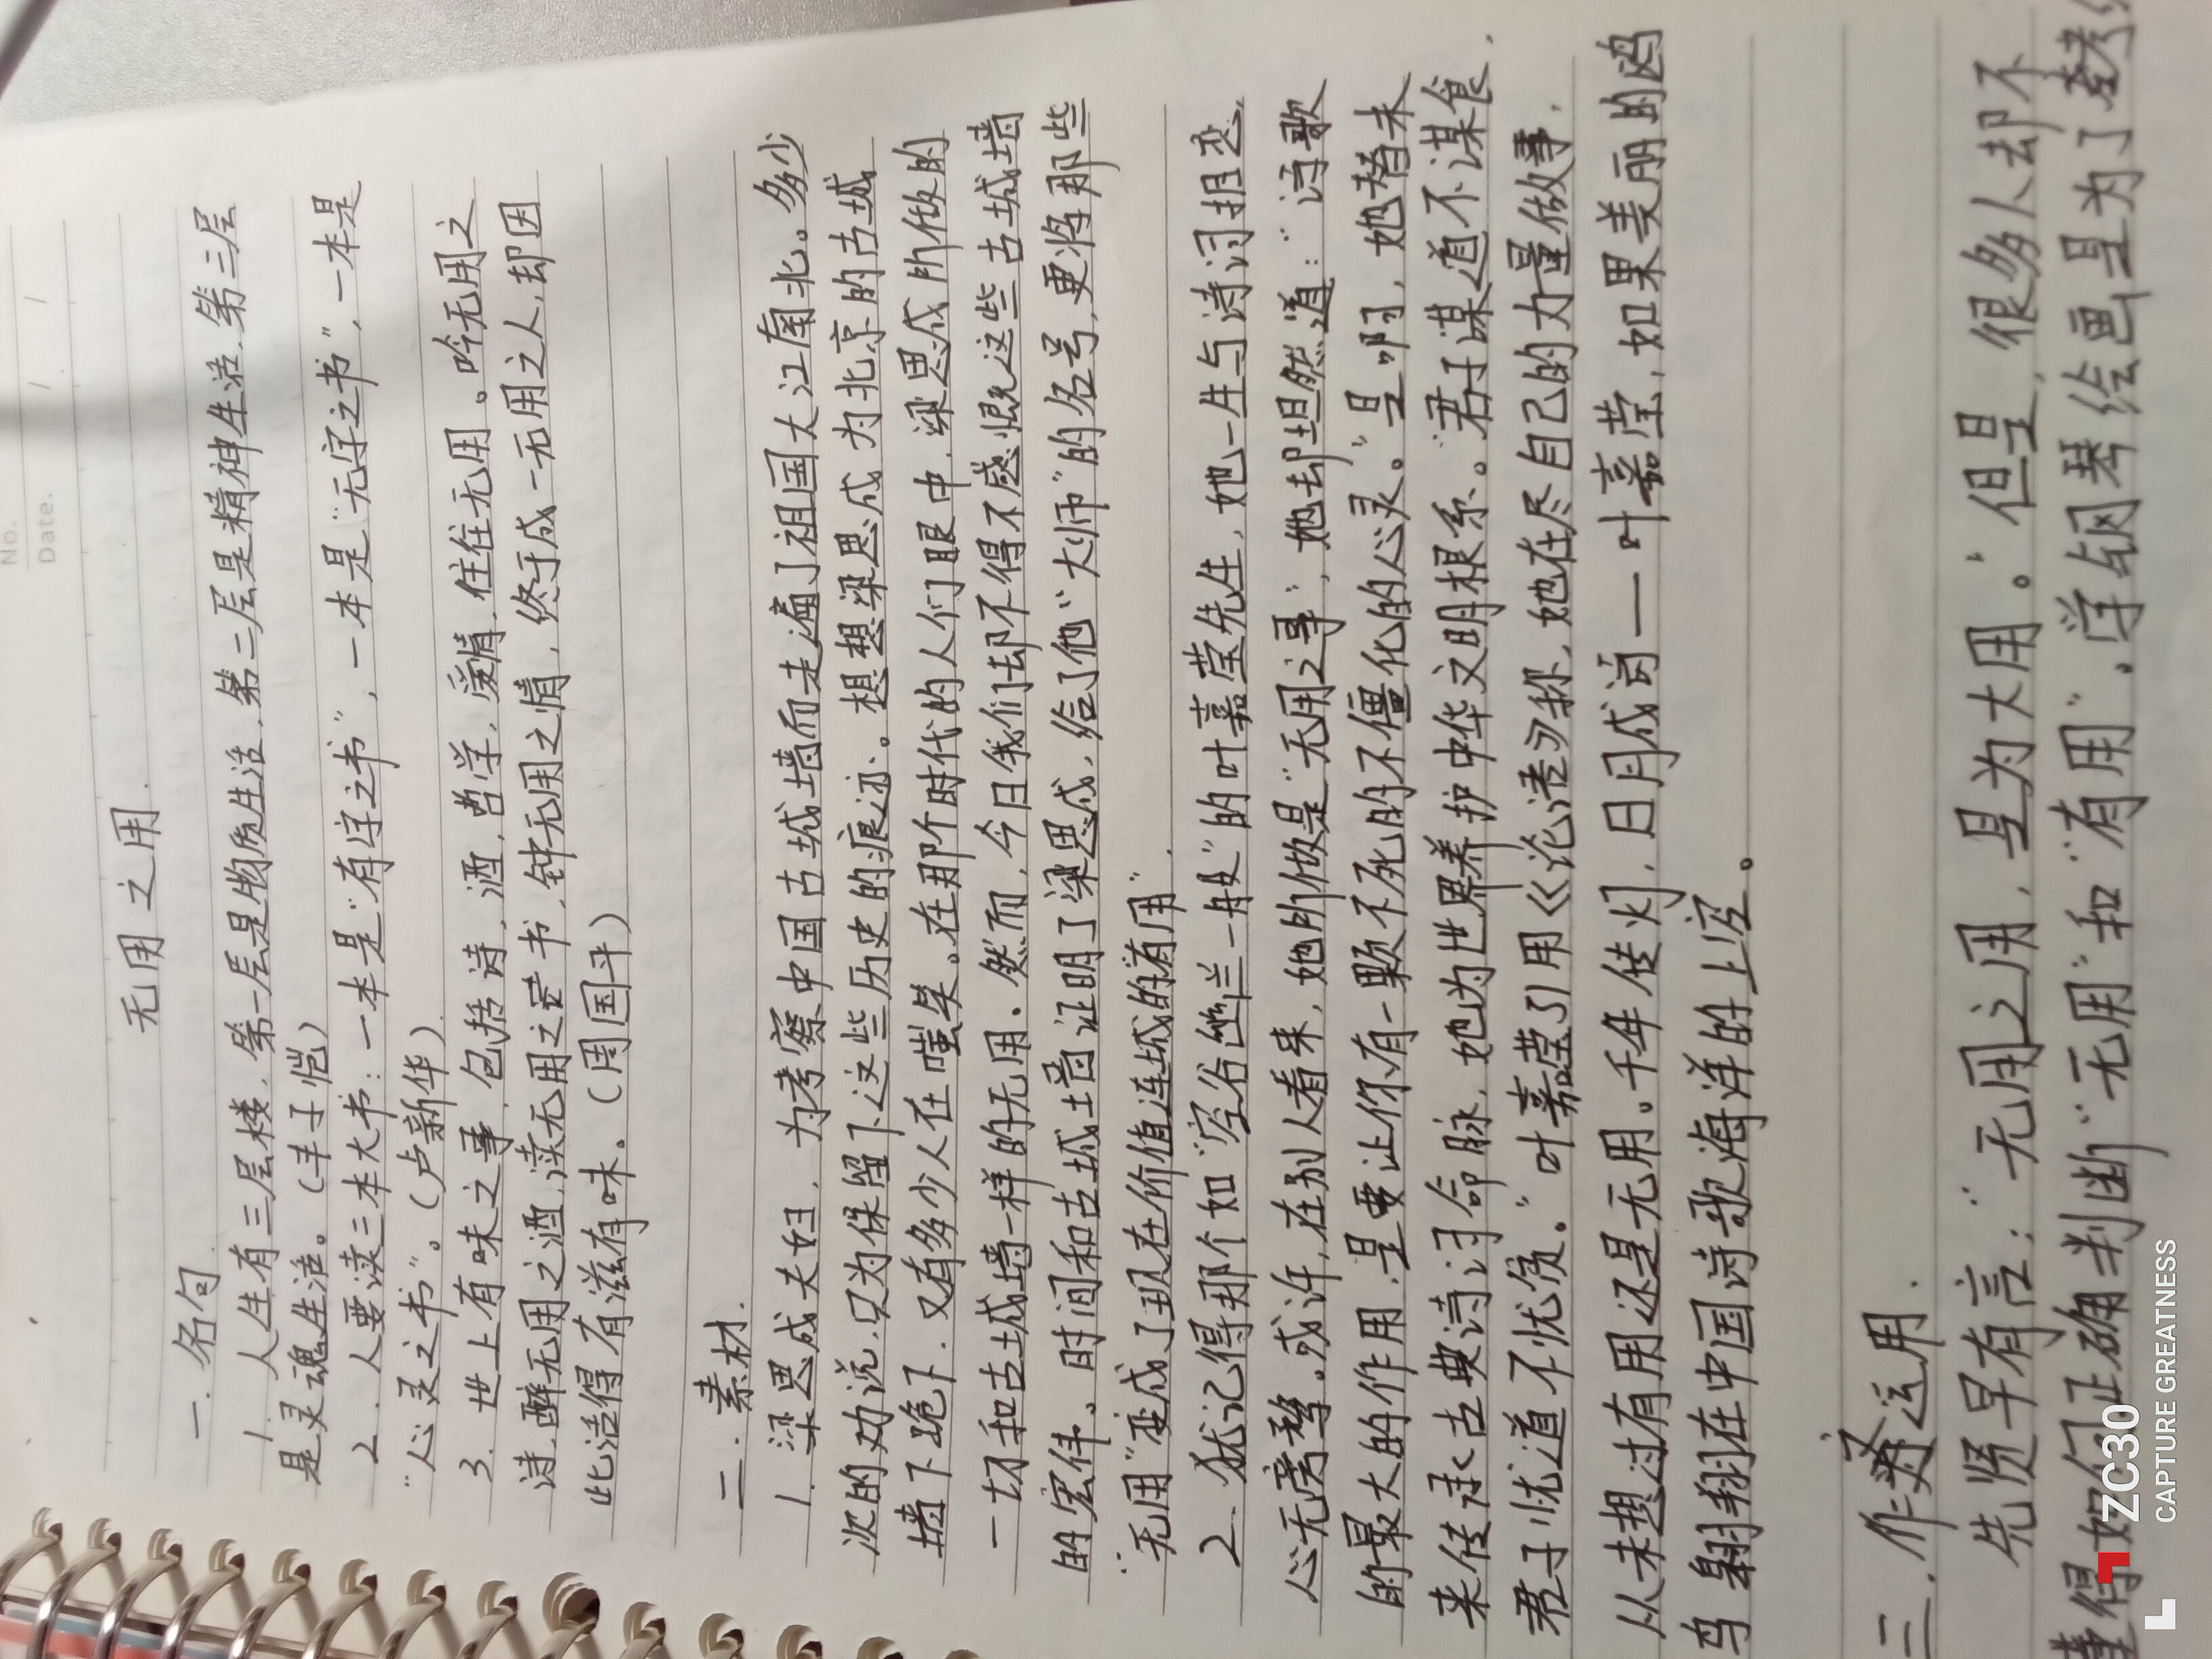 No.
Date. / /
无用之用.
一.名句.
1. 人生有三层楼, 第一层是物质生活, 第二层是精神生活, 第三层
是灵魂生活。(丰子恺)
2. 人要读三本大书：一本是“有字之书”, 一本是“无字之书”, 一本是
“心灵之书”。(卢新华).
3. 世上有味之事, 包括诗, 酒, 哲学, 爱情, 往往无用。吟无用之
诗, 醉无用之酒, 读无用之书, 钟无用之情, 终于成一无用之人, 却因
此活得有滋有味。(周国平)
二.素材.
1. 梁思成夫妇, 为考察中国古城墙而走遍了祖国大江南北。多少
次的劝说, 只为保留下这些历史的痕迹。想想梁思成为北京的古城
墙下跪下, 又有多少人在嗤笑。在那个时代的人们眼中, 梁思成所做的
一切和古城墙一样的无用。然而, 今日我们却不得不感慨这些古城墙
的宏伟。时间和古城墙证明了梁思成, 给了他“大师”的名号, 更将那些
“无用”变成了现在价值连城的“有用”.
2. 犹记得那个如“空谷幽兰一般”的叶嘉莹先生, 她一生与诗词相恋,
心无旁骛。或许, 在别人看来, 她所做是“无用之事”, 她却坦然道：“诗歌
的最大的作用, 是要让你有一颗不死的不僵化的心灵。”是啊, 她替未
来传承古典诗词命脉, 她为世界养护中华文明根系。“君子谋道不谋食,
君子忧道不忧贫。”叶嘉莹引用《论语》为称, 她在尽自己的力量做事,
从未想过有用还是无用。千年传灯, 日月成词——叶嘉莹, 如果美丽的鸥
鸟翱翔在中国诗歌海洋的上空。
三.作文运用.
先贤早有言：“无用之用, 是为大用。”但是, 很多人却不
懂得如何正确判断“无用”和“有用”. 学钢琴绘画是为了考
ZC30
CAPTURE GREATNESS